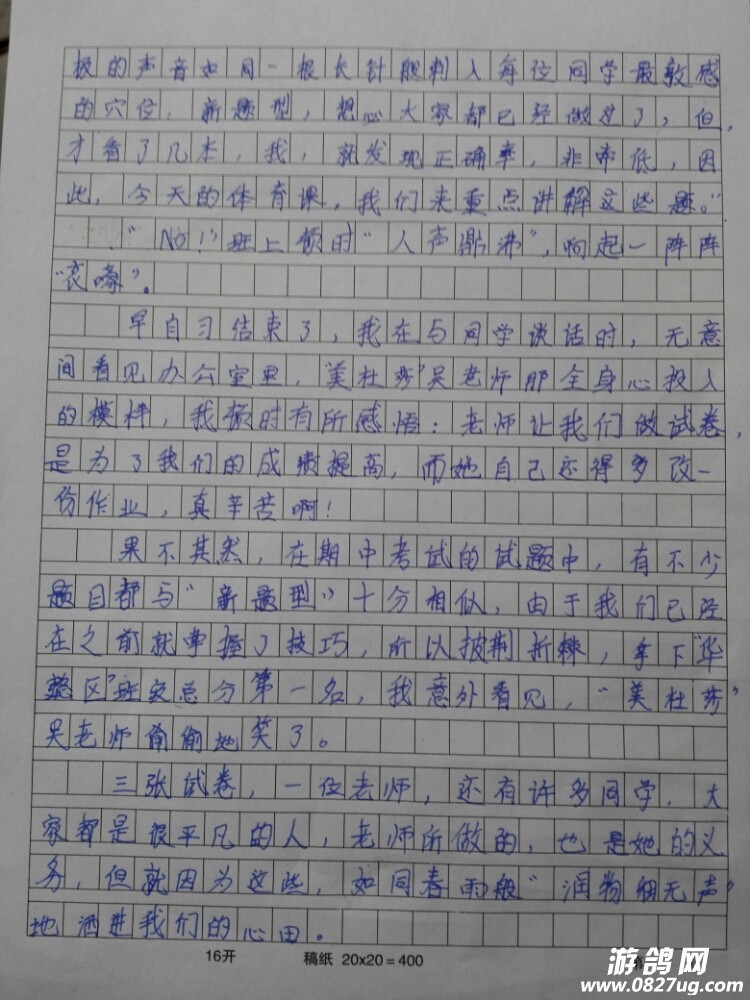 极的声音如同一根长针般刺入每位同学最敏感
的穴位.新题型,想必大家都已经做过了,但,
才看了几本,我,就发现正确率,非常低,因
此,今天的体育课,我们来重点讲解这些题。"
"NO!"班上顿时"人声鼎沸",响起一阵阵
"哀嚎"。
早自习结束了,我在与同学谈话时,无意
间看见办公室里,"美杜莎"吴老师那全身心投入
的模样,我顿时有所感悟:老师让我们做试卷,
是为了我们的成绩提高,而她自己还得多改一
份作业,真辛苦啊!
果不其然,在期中考试的试题中,有不少
题目都与"新题型"十分相似,由于我们已经
在之前就掌握了技巧,所以披荆折棘,拿下"华
区"班级总分第一名,我意外看见,"美杜莎"
吴老师偷偷地笑了。
三张试卷,一位老师,还有许多同学.大
家都是很平凡的人,老师所做的,也是她的义
务,但就因为这些,如同春雨般"润物细无声"
地洒进我们的心田。
16开 稿纸 20x20=400 第
游鸽网
www.0827ug.com